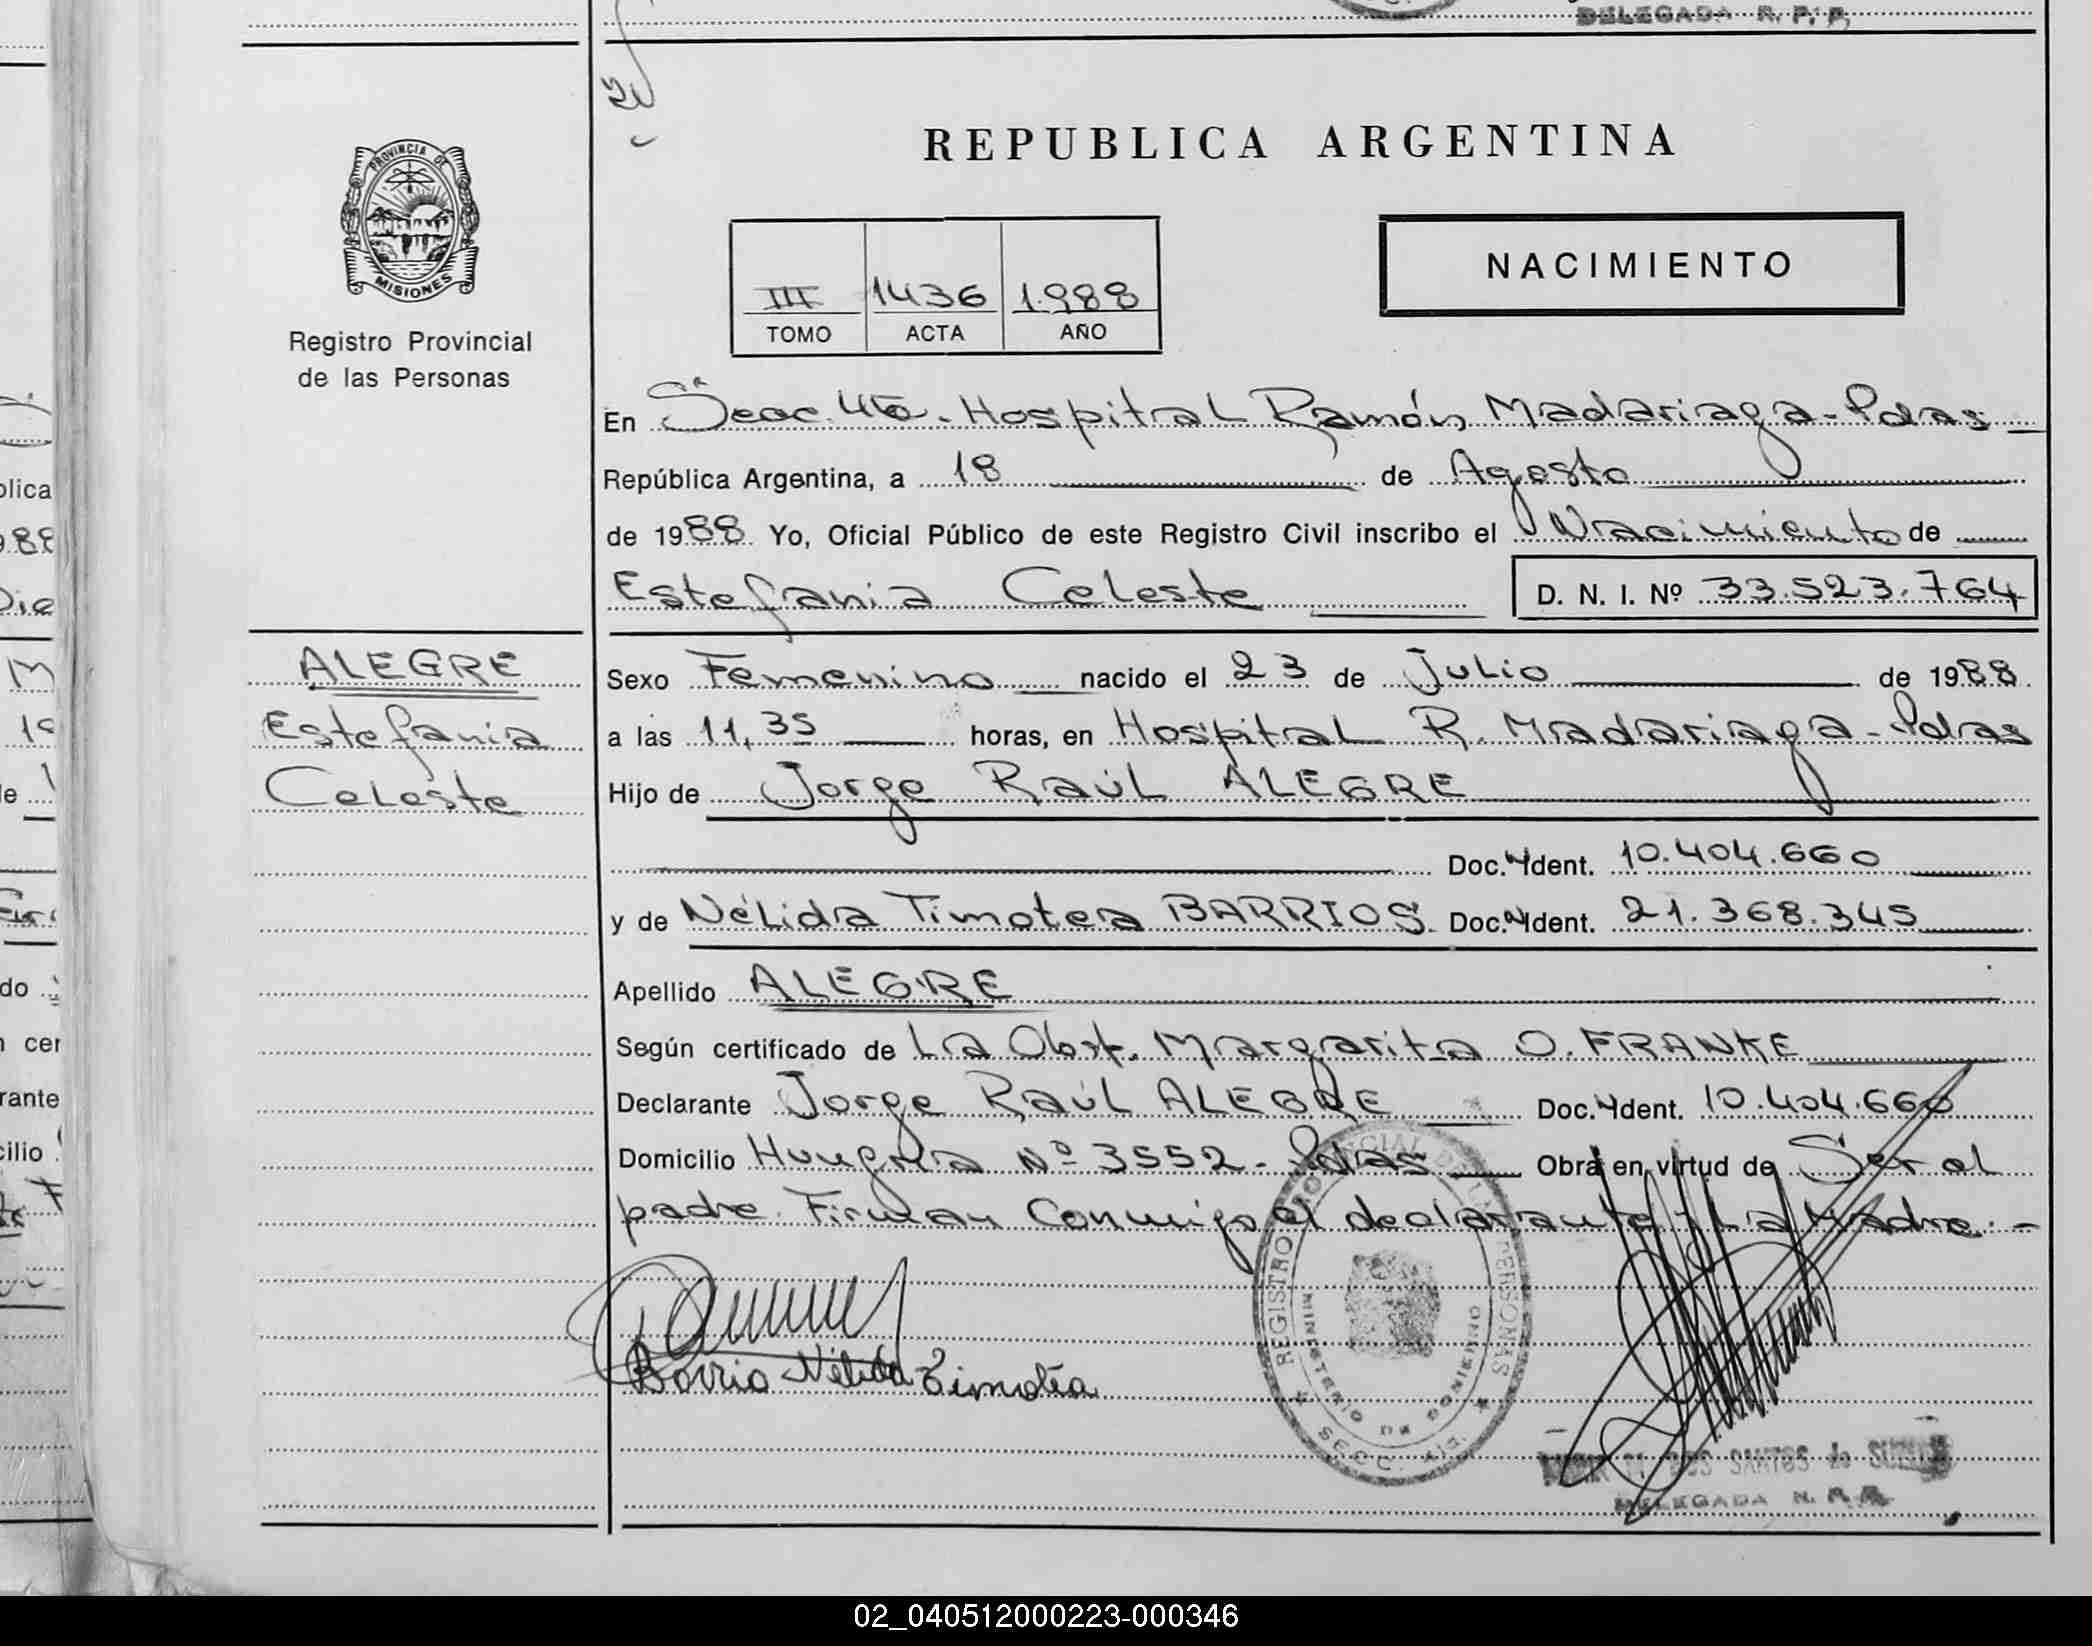 DELEGADA R. P. P.
REPUBLICA ARGENTINA
PROVINCIA DE
MISIONES
Registro Provincial
de las Personas
NACIMIENTO
III 1436 1.988
TOMO ACTA AÑO
En Secc. 4ta. Hospital Ramón Madariaga - Pdas
República Argentina, a 18 de Agosto
de 1988 Yo, Oficial Público de este Registro Civil inscribo el Nacimiento de
Estefania Celeste D. N. I. Nº 33.523.764
ALEGRE
Estefania
Celeste
Sexo Femenino nacido el 23 de Julio de 1988
a las 11,35 horas, en Hospital R. Madariaga - Pdas
Hijo de Jorge Raúl ALEGRE
Doc. Ident. 10.404.660
y de Nélida Timotea BARRIOS Doc. Ident. 21.368.345
Apellido ALEGRE
Según certificado de La Obst. Margarita O. FRANKE
Declarante Jorge Raúl ALEGRE Doc. Ident. 10.404.660
Domicilio Hungría Nº 3552 - Pdas Obra en virtud de Ser el
padre. Firman Conmigo el declarante y La Madre. -
Barrio Nélida Timotéa
REGISTRO PROVINCIAL DE LAS PERSONAS
MINISTERIO DE GOBIERNO
SECC. 4ta.
DOS SANTOS de
DELEGADA
02_040512000223-000346